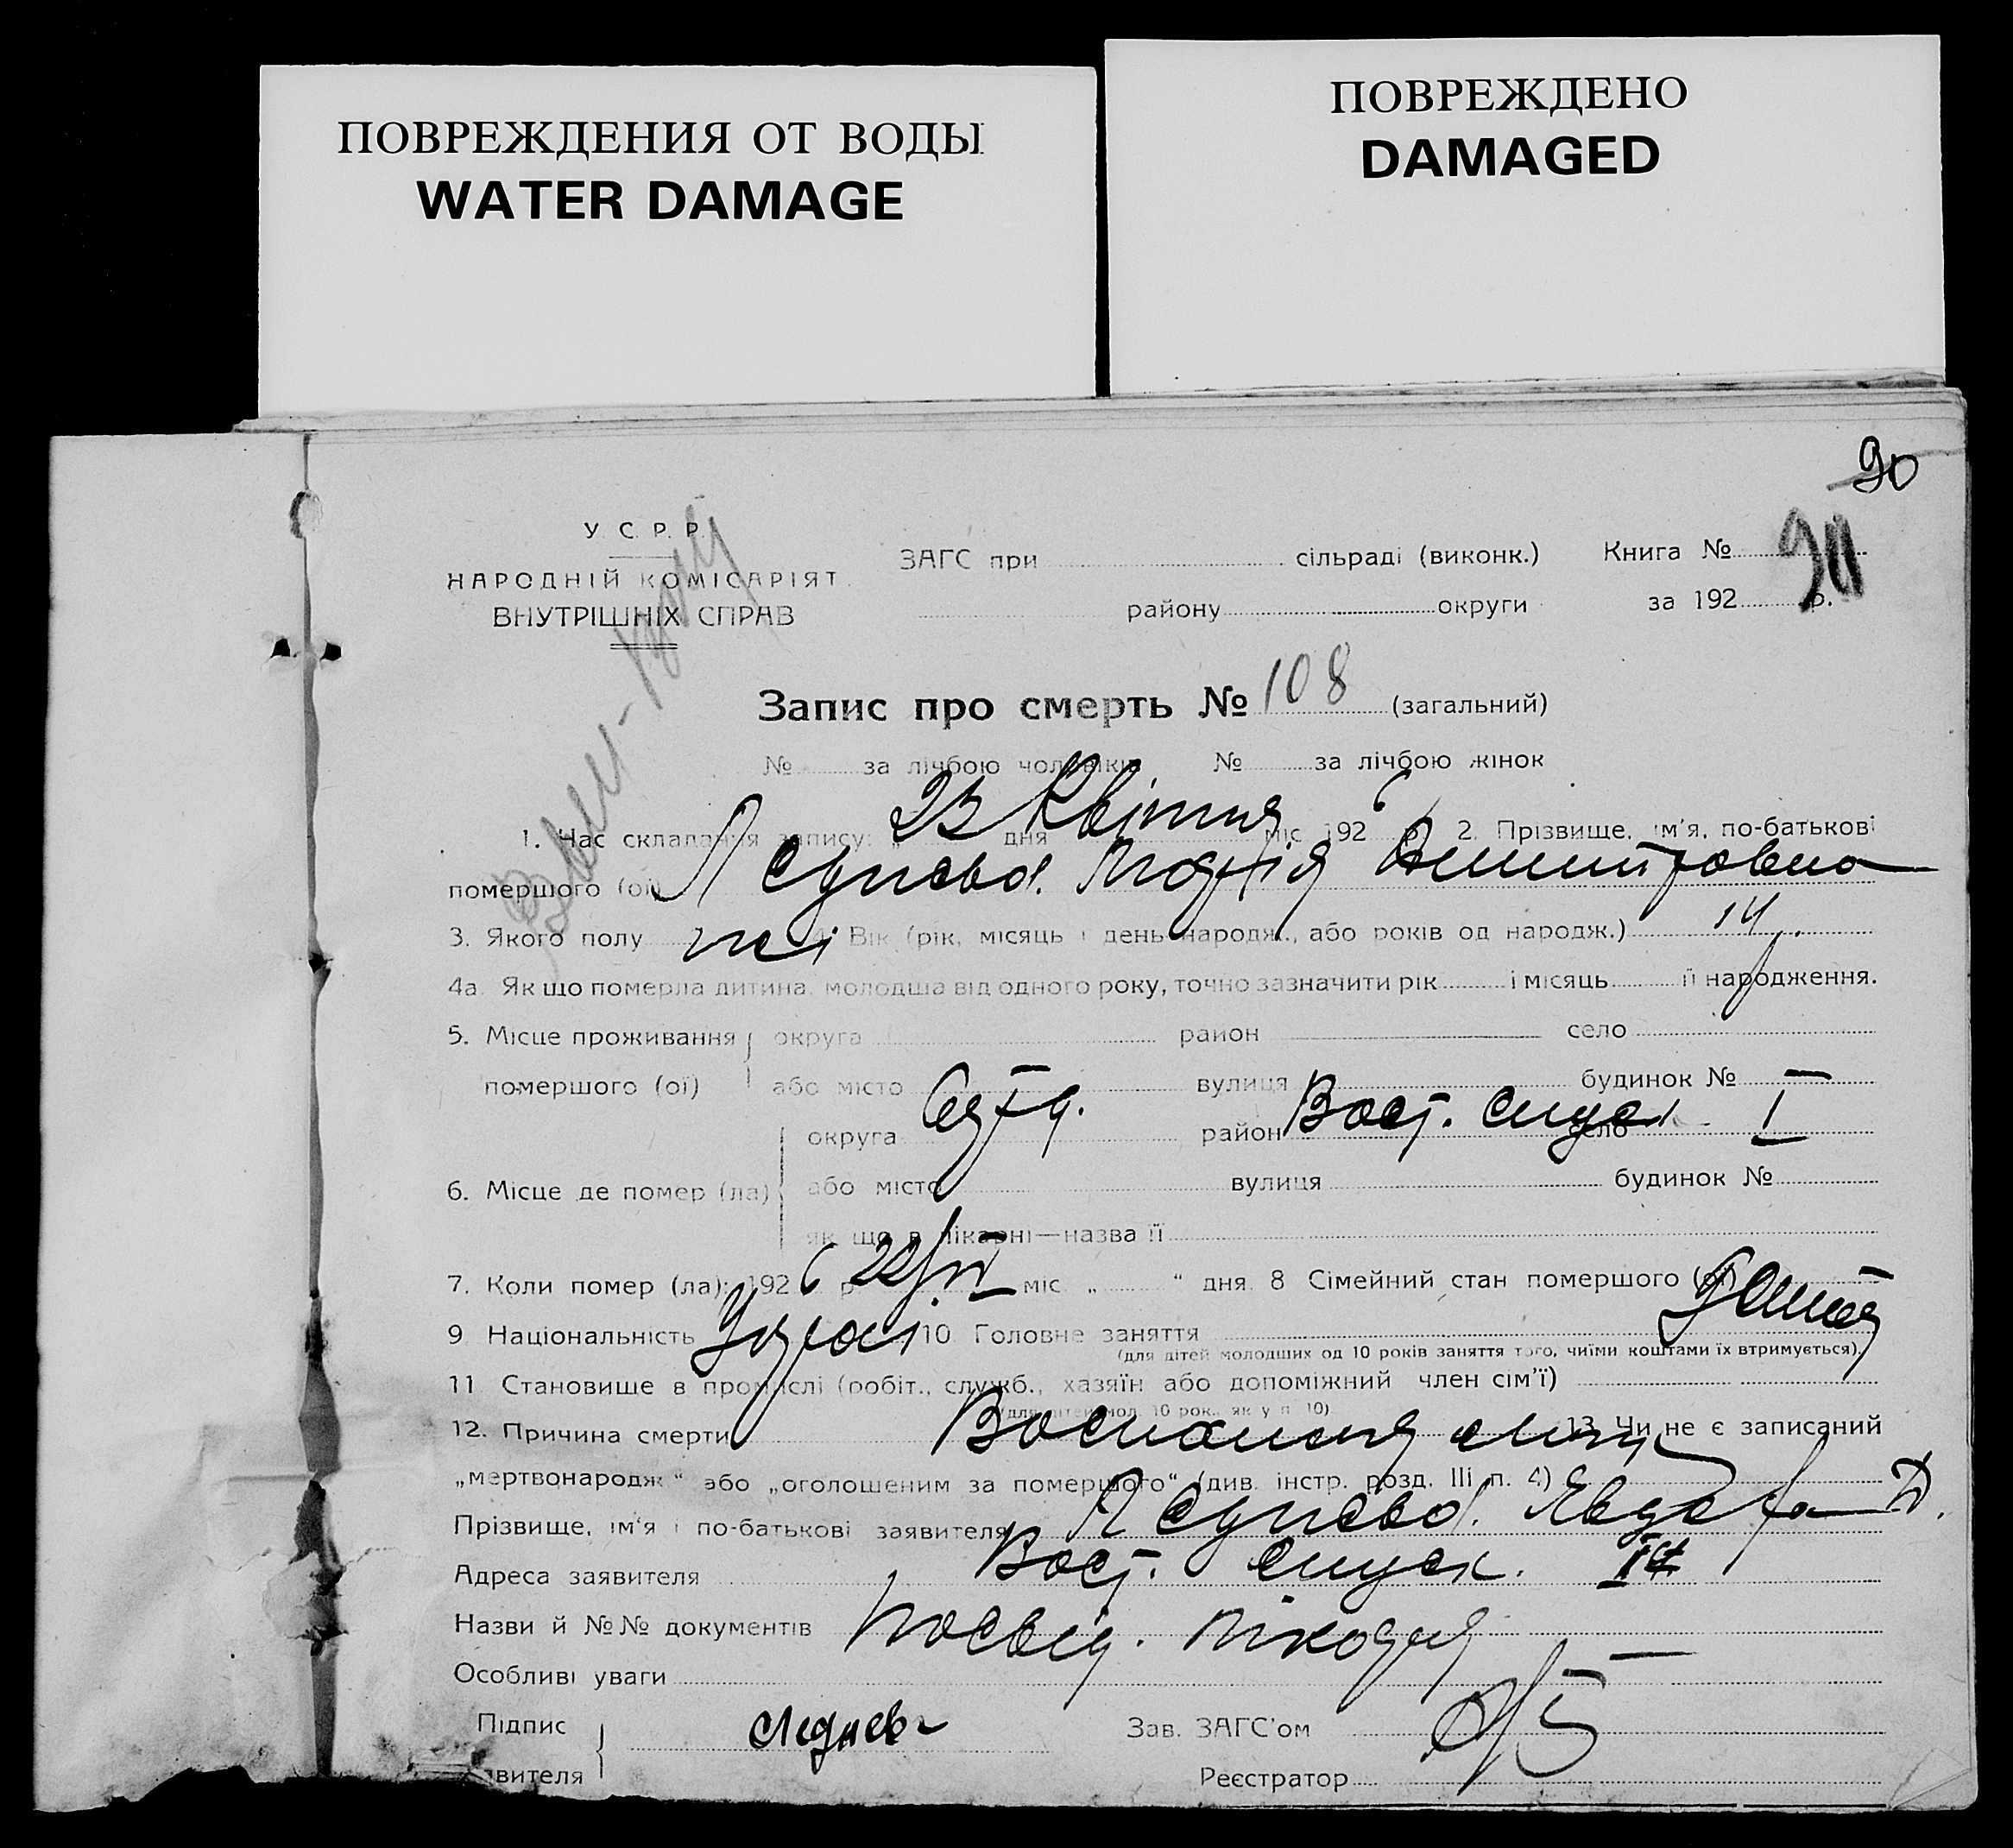 ПОВРЕЖДЕНИЯ ОТ ВОДЫ
WATER DAMAGE
ПОВРЕЖДЕНО
DAMAGED
90
У. С. Р. Р.
НАРОДНІЙ КОМІСАРІЯТ
ВНУТРІШНІХ СПРАВ
ЗАГС при сільраді (виконк.) Книга №
району округи за 192 р.
Запис про смерть № 108 (загальний)
№ за лічбою чоловіків № за лічбою жінок
1. Час складання запису: „ 23 дня Квітня міс. 192 6 р. 2. Прізвище, ім'я, по-батькові
помершого (ої) Леднева Марія
3. Якого полу жі 4. Вік (рік, місяць і день народж., або років од народж.) 14
4а. Як що померла дитина, молодша від одного року, точно зазначити рік і місяць її народження.
5. Місце проживання округа район село
помершого (ої) або місто вулиця Вост. спуск будинок № I
6. Місце де помер (ла) округа район село
або місто вулиця будинок №
як що в лікарні—назва її
7. Коли помер (ла): 192 6 р. 22/IV міс. „ “ дня. 8 Сімейний стан помершого (ої)
9 Національність 10. Головне заняття
(для дітей молодших од 10 років заняття того, чиїми коштами їх втримується).
11 Становище в промислі (робіт., служб., хазяїн або допоміжний член сім'ї)
(для дітей мол. 10 рок., як у п. 10)
12. Причина смерти 13. Чи не є записаний
„мертвонародж.“ або „оголошеним за помершого“ (див. інстр. розд. III п. 4)
Прізвище, ім'я і по-батькові заявителя Леднева
Адреса заявителя Вост. спуск.
Назви й №№ документів Посвід.
Особливі уваги
Підпис Леднев Зав. ЗАГС'ом
явителя Реєстратор